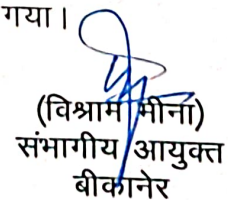 गया।
(विश्राम मीना)
संभागीय आयुक्त
बीकानेर